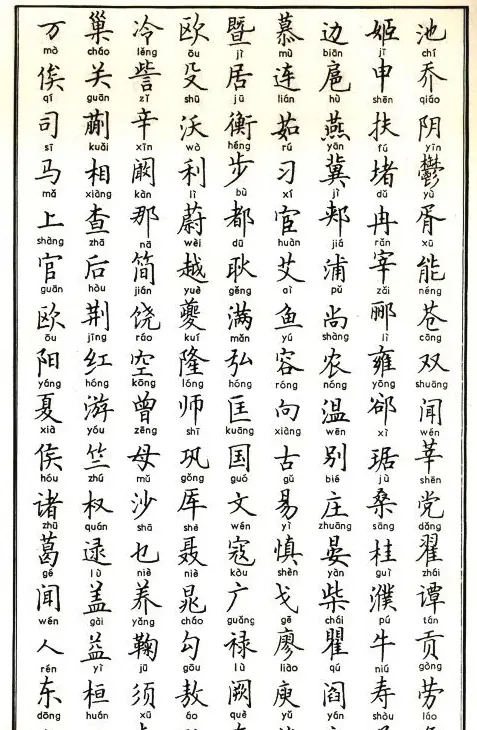 池 chí 乔 qiáo 阴 yīn 鬱 yù 胥 xū 能 néng 苍 cāng 双 shuāng 闻 wén 莘 shēn 党 dǎng 翟 zhái 谭 tán 贡 gòng 劳 láo
姬 jī 申 shēn 扶 fú 堵 dǔ 冉 rǎn 宰 zǎi 郦 lì 雍 yōng 郤 xì 琚 jù 桑 sāng 桂 guì 濮 pú 牛 niú 寿 shòu
边 biān 扈 hù 燕 yān 冀 jì 郏 jiá 浦 pǔ 尚 shàng 农 nóng 温 wēn 别 bié 庄 zhuāng 晏 yàn 柴 chái 瞿 qú 阎 yán
慕 mù 连 lián 茹 rú 习 xí 宦 huàn 艾 ài 鱼 yú 容 róng 向 xiàng 古 gǔ 易 yì 慎 shèn 戈 gē 廖 liào 庾 yǔ
暨 jì 居 jū 衡 héng 步 bù 都 dū 耿 gěng 满 mǎn 弘 hóng 匡 kuāng 国 guó 文 wén 寇 kòu 广 guǎng 禄 lù 阙 què
欧 ōu 殳 shū 沃 wò 利 lì 蔚 wèi 越 yuè 夔 kuí 隆 lóng 师 shī 巩 gǒng 厍 shè 聂 niè 晁 cháo 勾 gōu 敖 áo
冷 lěng 訾 zī 辛 xīn 阚 kàn 那 nā 简 jiǎn 饶 ráo 空 kōng 曾 zēng 毋 mǔ 沙 shā 乜 niè 养 yǎng 鞠 jū 须 xū
巢 cháo 关 guān 蒯 kuǎi 相 xiàng 查 zhā 后 hòu 荆 jīng 红 hóng 游 yóu 竺 zhú 权 quán 逯 lù 盖 gài 益 yì 桓 huán
万 mò 俟 qí 司 sī 马 mǎ 上 shàng 官 guān 欧 ōu 阳 yáng 夏 xià 侯 hóu 诸 zhū 葛 gě 闻 wén 人 rén 东 dōng